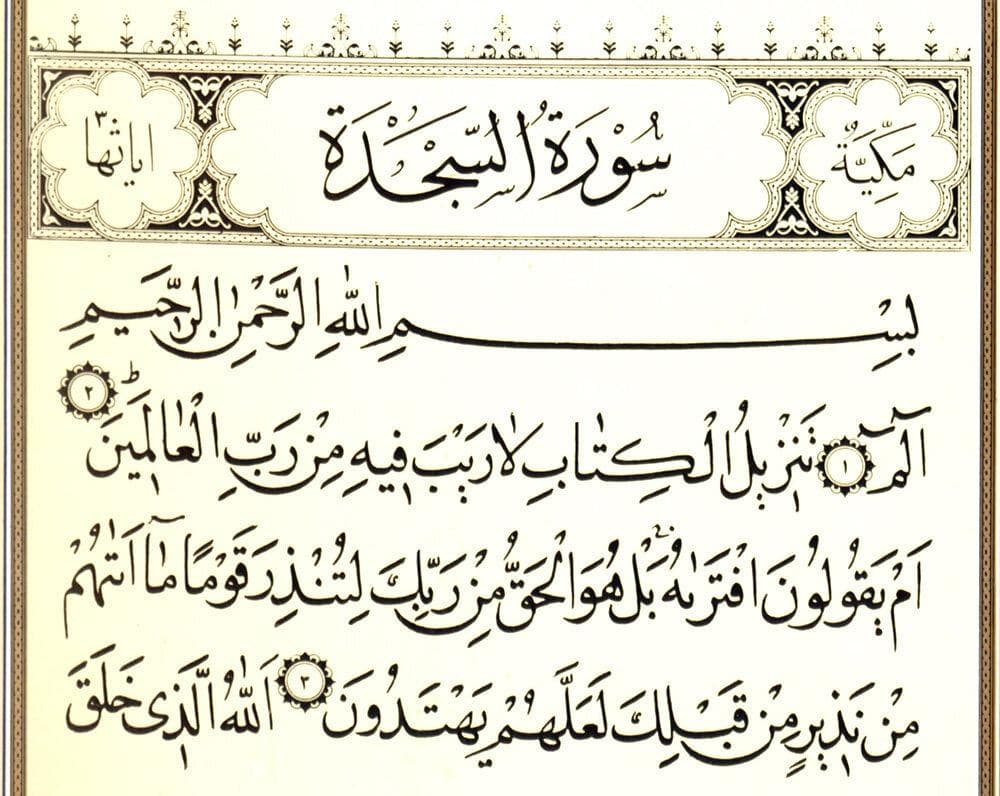 مَكِّيَّةٌ سُورَةُ السَّجْدَةِ اياتها ٣٠
بِسْمِ اللّٰهِ الرَّحْمٰنِ الرَّحٖيمِ
الٓمٓ ﴿١﴾ تَنْزٖيلُ الْكِتَابِ لَا رَيْبَ فٖيهِ مِنْ رَبِّ الْعَالَمٖينَۜ ﴿٢﴾
اَمْ يَقُولُونَ افْتَرٰيهُۚ بَلْ هُوَ الْحَقُّ مِنْ رَبِّكَ لِتُنْذِرَ قَوْمًا مَٓا اَتٰيهُمْ
مِنْ نَذٖيرٍ مِنْ قَبْلِكَ لَعَلَّهُمْ يَهْتَدُونَ ﴿٣﴾ اَللّٰهُ الَّذٖى خَلَقَ